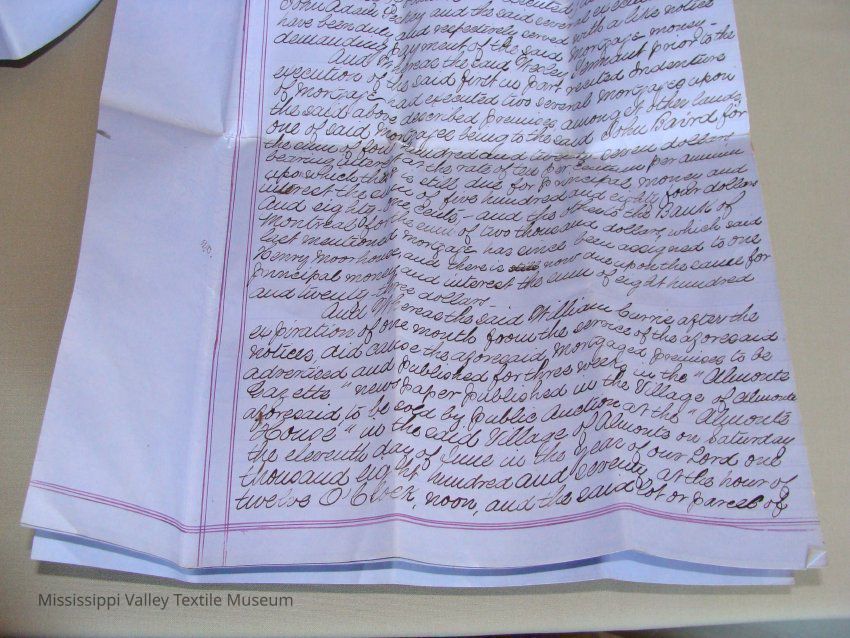 John Adam Teskey and the said several
have been duly and respectively served with a like notice
demanding payment of the said Mortgage money –
And Whereas the said Wesley Tennant prior to the
execution of the said first in part recited Indenture
of Mortgage had executed two several mortgages upon
the said above described premises among st other lands,
one of said Mortgages being to the said John Baird for
the sum of four hundred and twenty seven dollars
bearing interest at the rate of ten per centum per annum
upon which there is still due for principal money and
interest the sum of five hundred and eighty four dollars
and eighty-one cents, – and the other to the Bank of
Montreal for the sum of two thousand dollars, which said
last mentioned mortgage has since been assigned to one
Henry Moorhouse, and there is now due upon the same for
principal money and interest the sum of eight hundred
and twenty-three dollars –
And Whereas the said William Currie after the
expiration of one month from the service of the aforesaid
notices, did cause the aforesaid mortgaged premises to be
advertised and published for three weeks in the "Almonte
Gazette" newspaper published in the Village of Almonte
aforesaid to be sold by public Auction at the "Almonte
House" in the said Village of Almonte on Saturday
the eleventh day of June in the year of our Lord one
thousand eight hundred and seventy, at the hour of
twelve O'Clock, noon, and the said lot or parcel of
Mississippi Valley Textile Museum